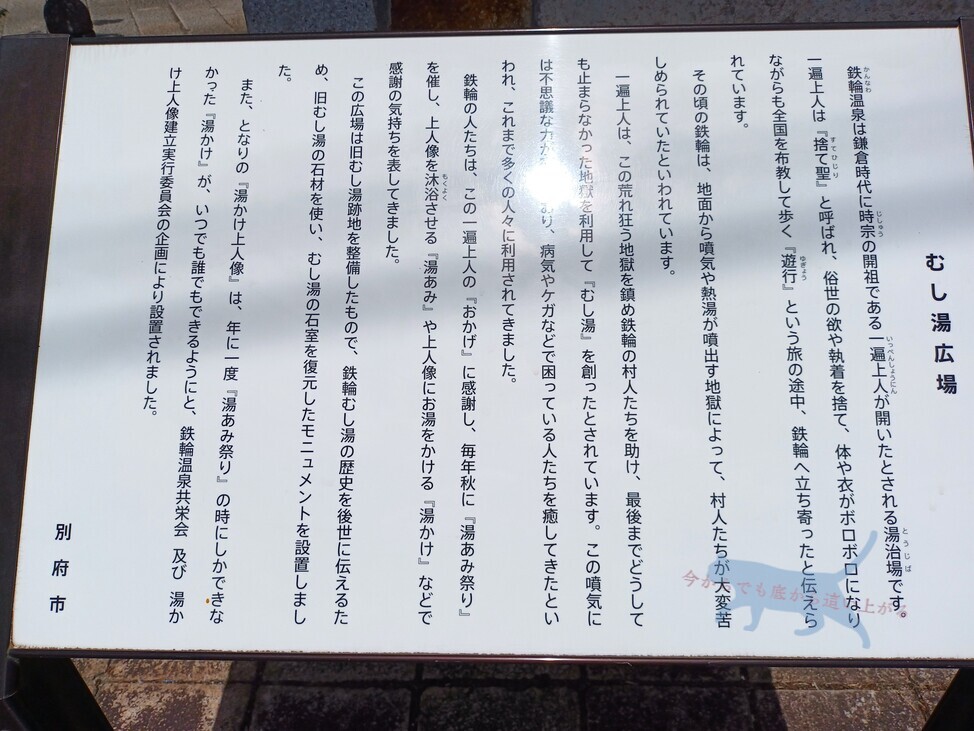 むし湯広場
鉄輪温泉は鎌倉時代に時宗の開祖である一遍上人が開いたとされる湯治場です。
かんなわ
じしゅう
いっぺんしょうにん
とうじば
一遍上人は『捨て聖』と呼ばれ、俗世の欲や執着を捨て、体や衣がボロボロになり
すてひじり
ながらも全国を布教して歩く『遊行』という旅の途中、鉄輪へ立ち寄ったと伝えら
ゆぎょう
れています。
その頃の鉄輪は、地面から噴気や熱湯が噴出す地獄によって、村人たちが大変苦
しめられていたといわれています。
一遍上人は、この荒れ狂う地獄を鎮め鉄輪の村人たちを助け、最後までどうして
も止まらなかった地獄を利用して『むし湯』を創ったとされています。この噴気に
は不思議な力が あり、病気やケガなどで困っている人たちを癒してきたとい
われ、これまで多くの人々に利用されてきました。
鉄輪の人たちは、この一遍上人の『おかげ』に感謝し、毎年秋に『湯あみ祭り』
を催し、上人像を沐浴させる『湯あみ』や上人像にお湯をかける『湯かけ』などで
もくよく
感謝の気持ちを表してきました。
この広場は旧むし湯跡地を整備したもので、鉄輪むし湯の歴史を後世に伝えるた
め、旧むし湯の石材を使い、むし湯の石室を復元したモニュメントを設置しまし
た。
また、となりの『湯かけ上人像』は、年に一度『湯あみ祭り』の時にしかできな
かった『湯かけ』が、いつでも誰でもできるようにと、鉄輪温泉共栄会 及び 湯か
け上人像建立実行委員会の企画により設置されました。
別府市
今からでも底から這い上がる